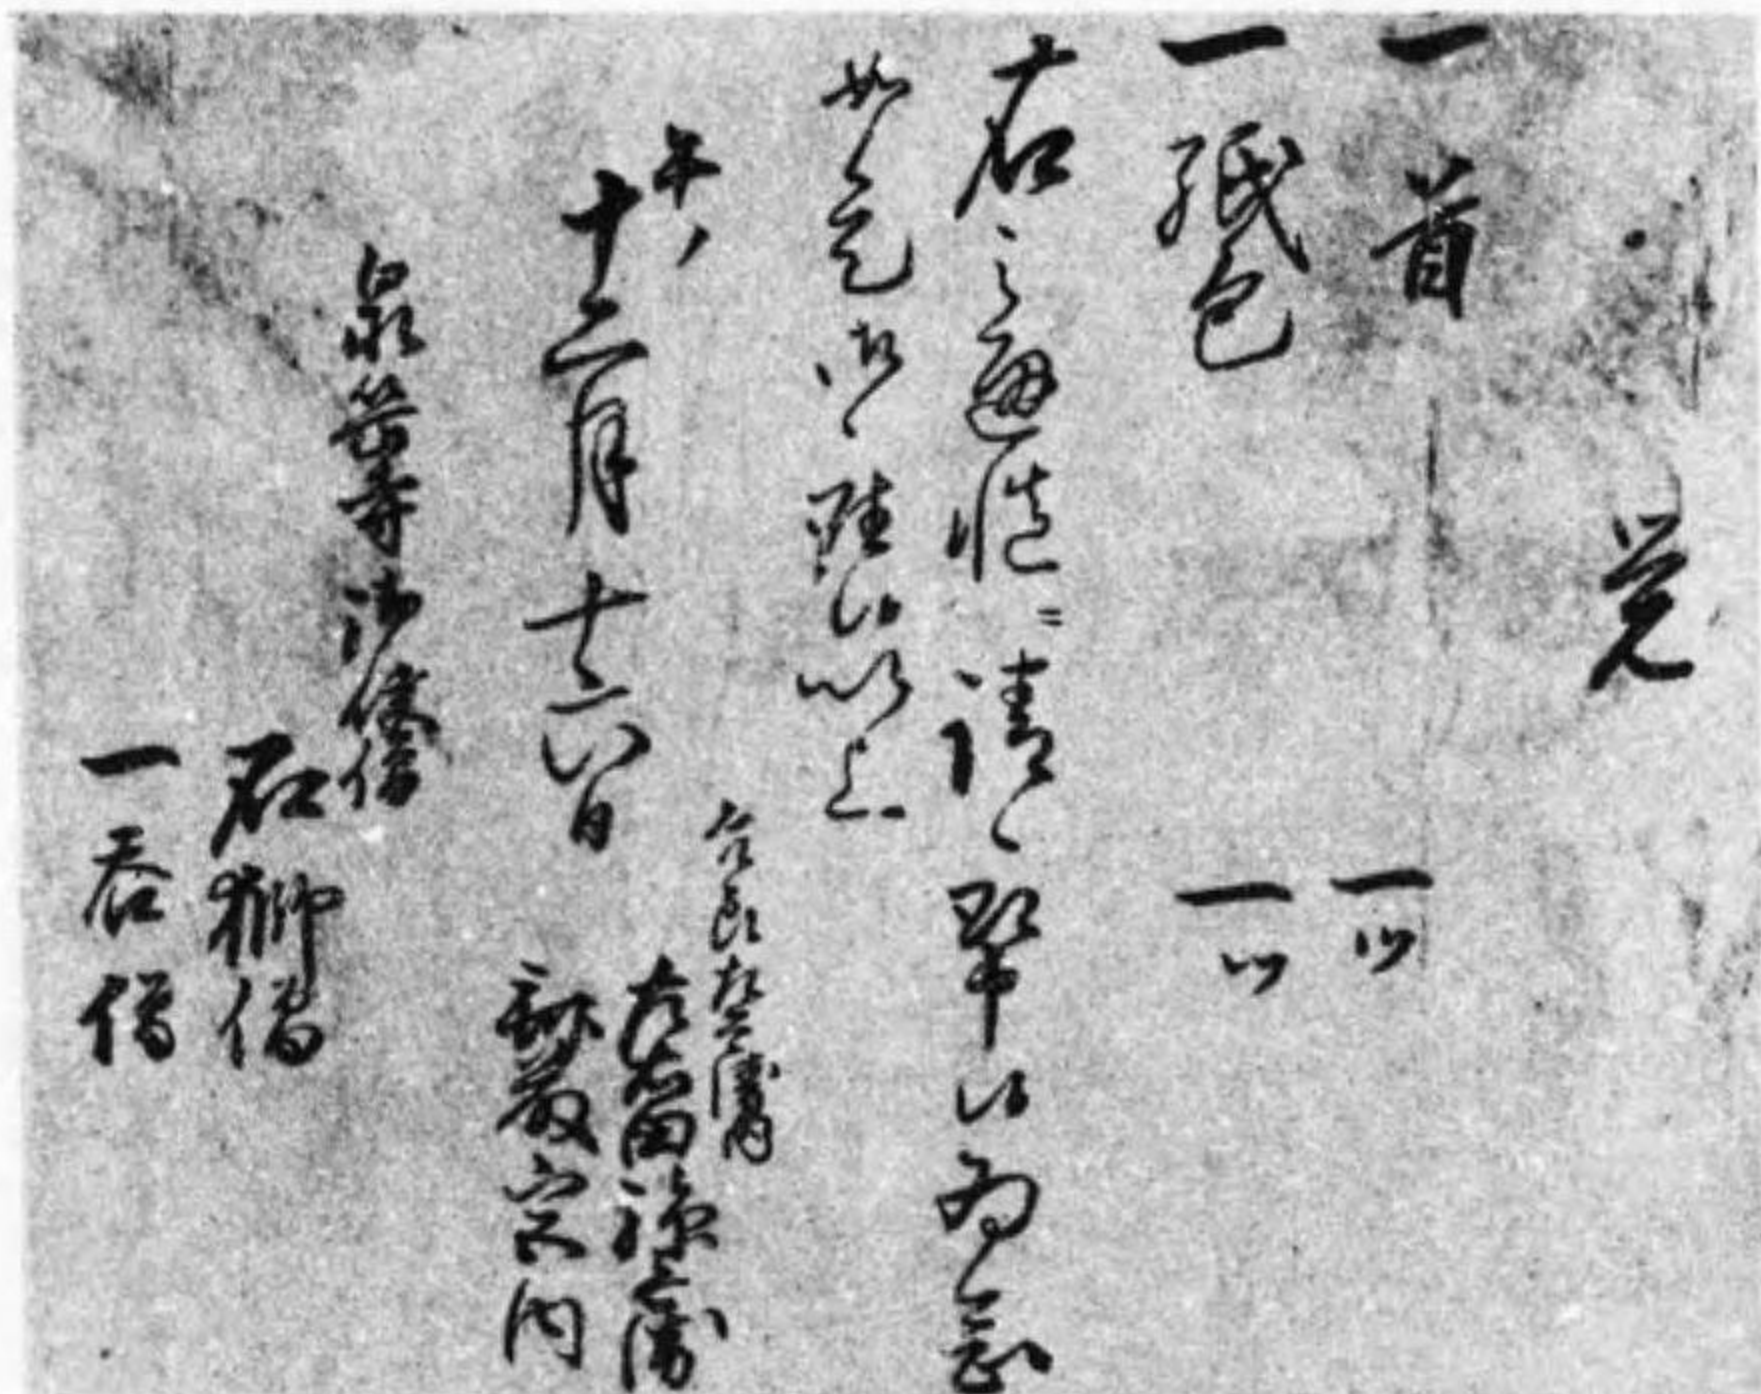 覚
一 首 一ツ
一 紙包 一ツ
右之通慥ニ請取申候為念
如是御座候以上
午ノ
十二月十六日
吉良左兵衛内
左右田孫兵衛
斎藤宮内
泉岳寺御使僧
石獅僧
一呑僧